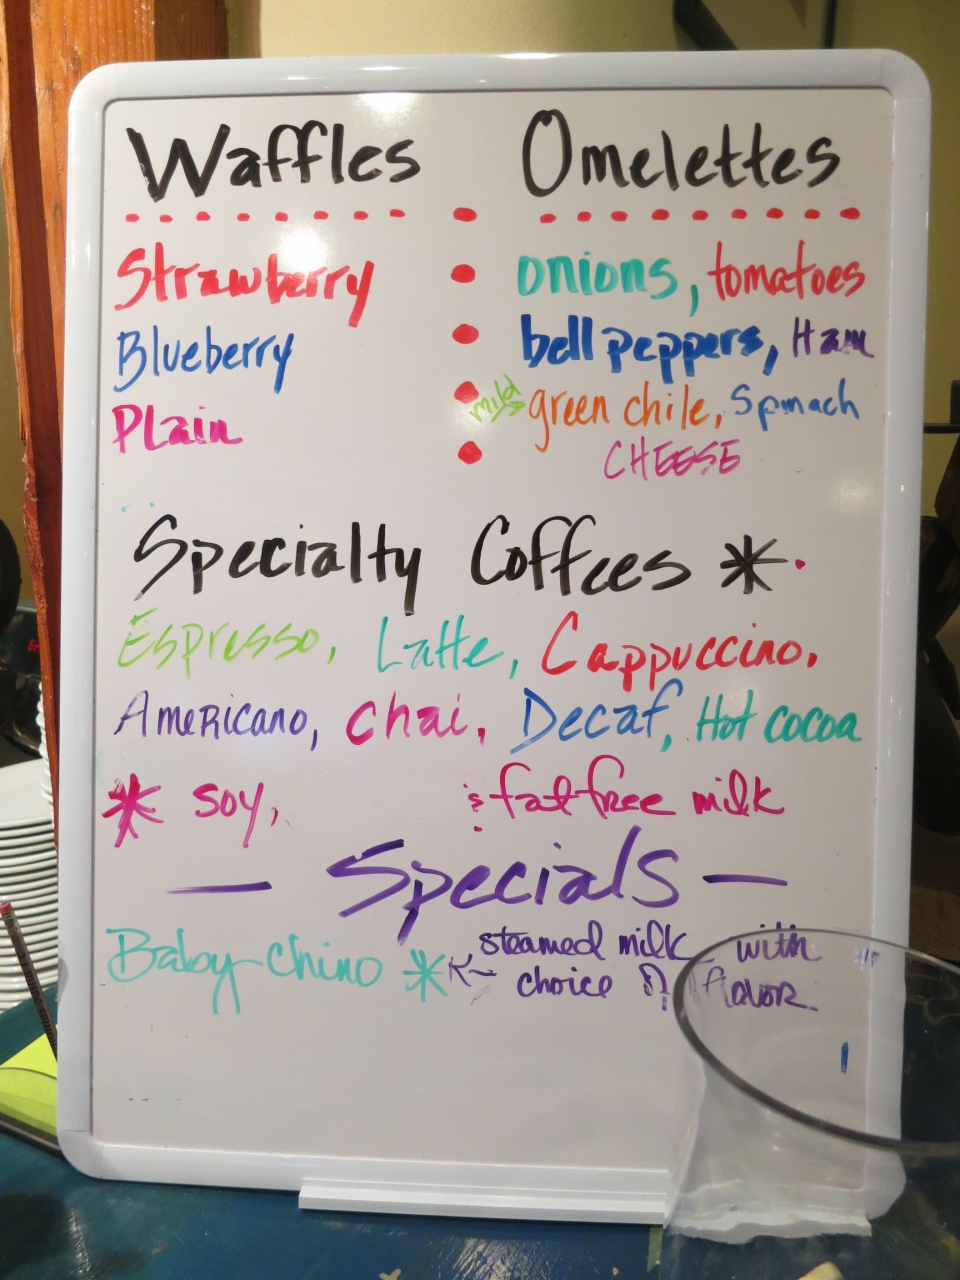 Waffles
Omelettes
Strawberry
Blueberry
Plain
onions, tomatoes
bell peppers, Ham
mild → green chile, Spinach
CHEESE
Specialty Coffees *
Espresso, Latte, Cappuccino,
Americano, chai, Decaf, Hot cocoa
* soy, & fat free milk
— Specials —
Baby chino * ← steamed milk with
choice of flavor